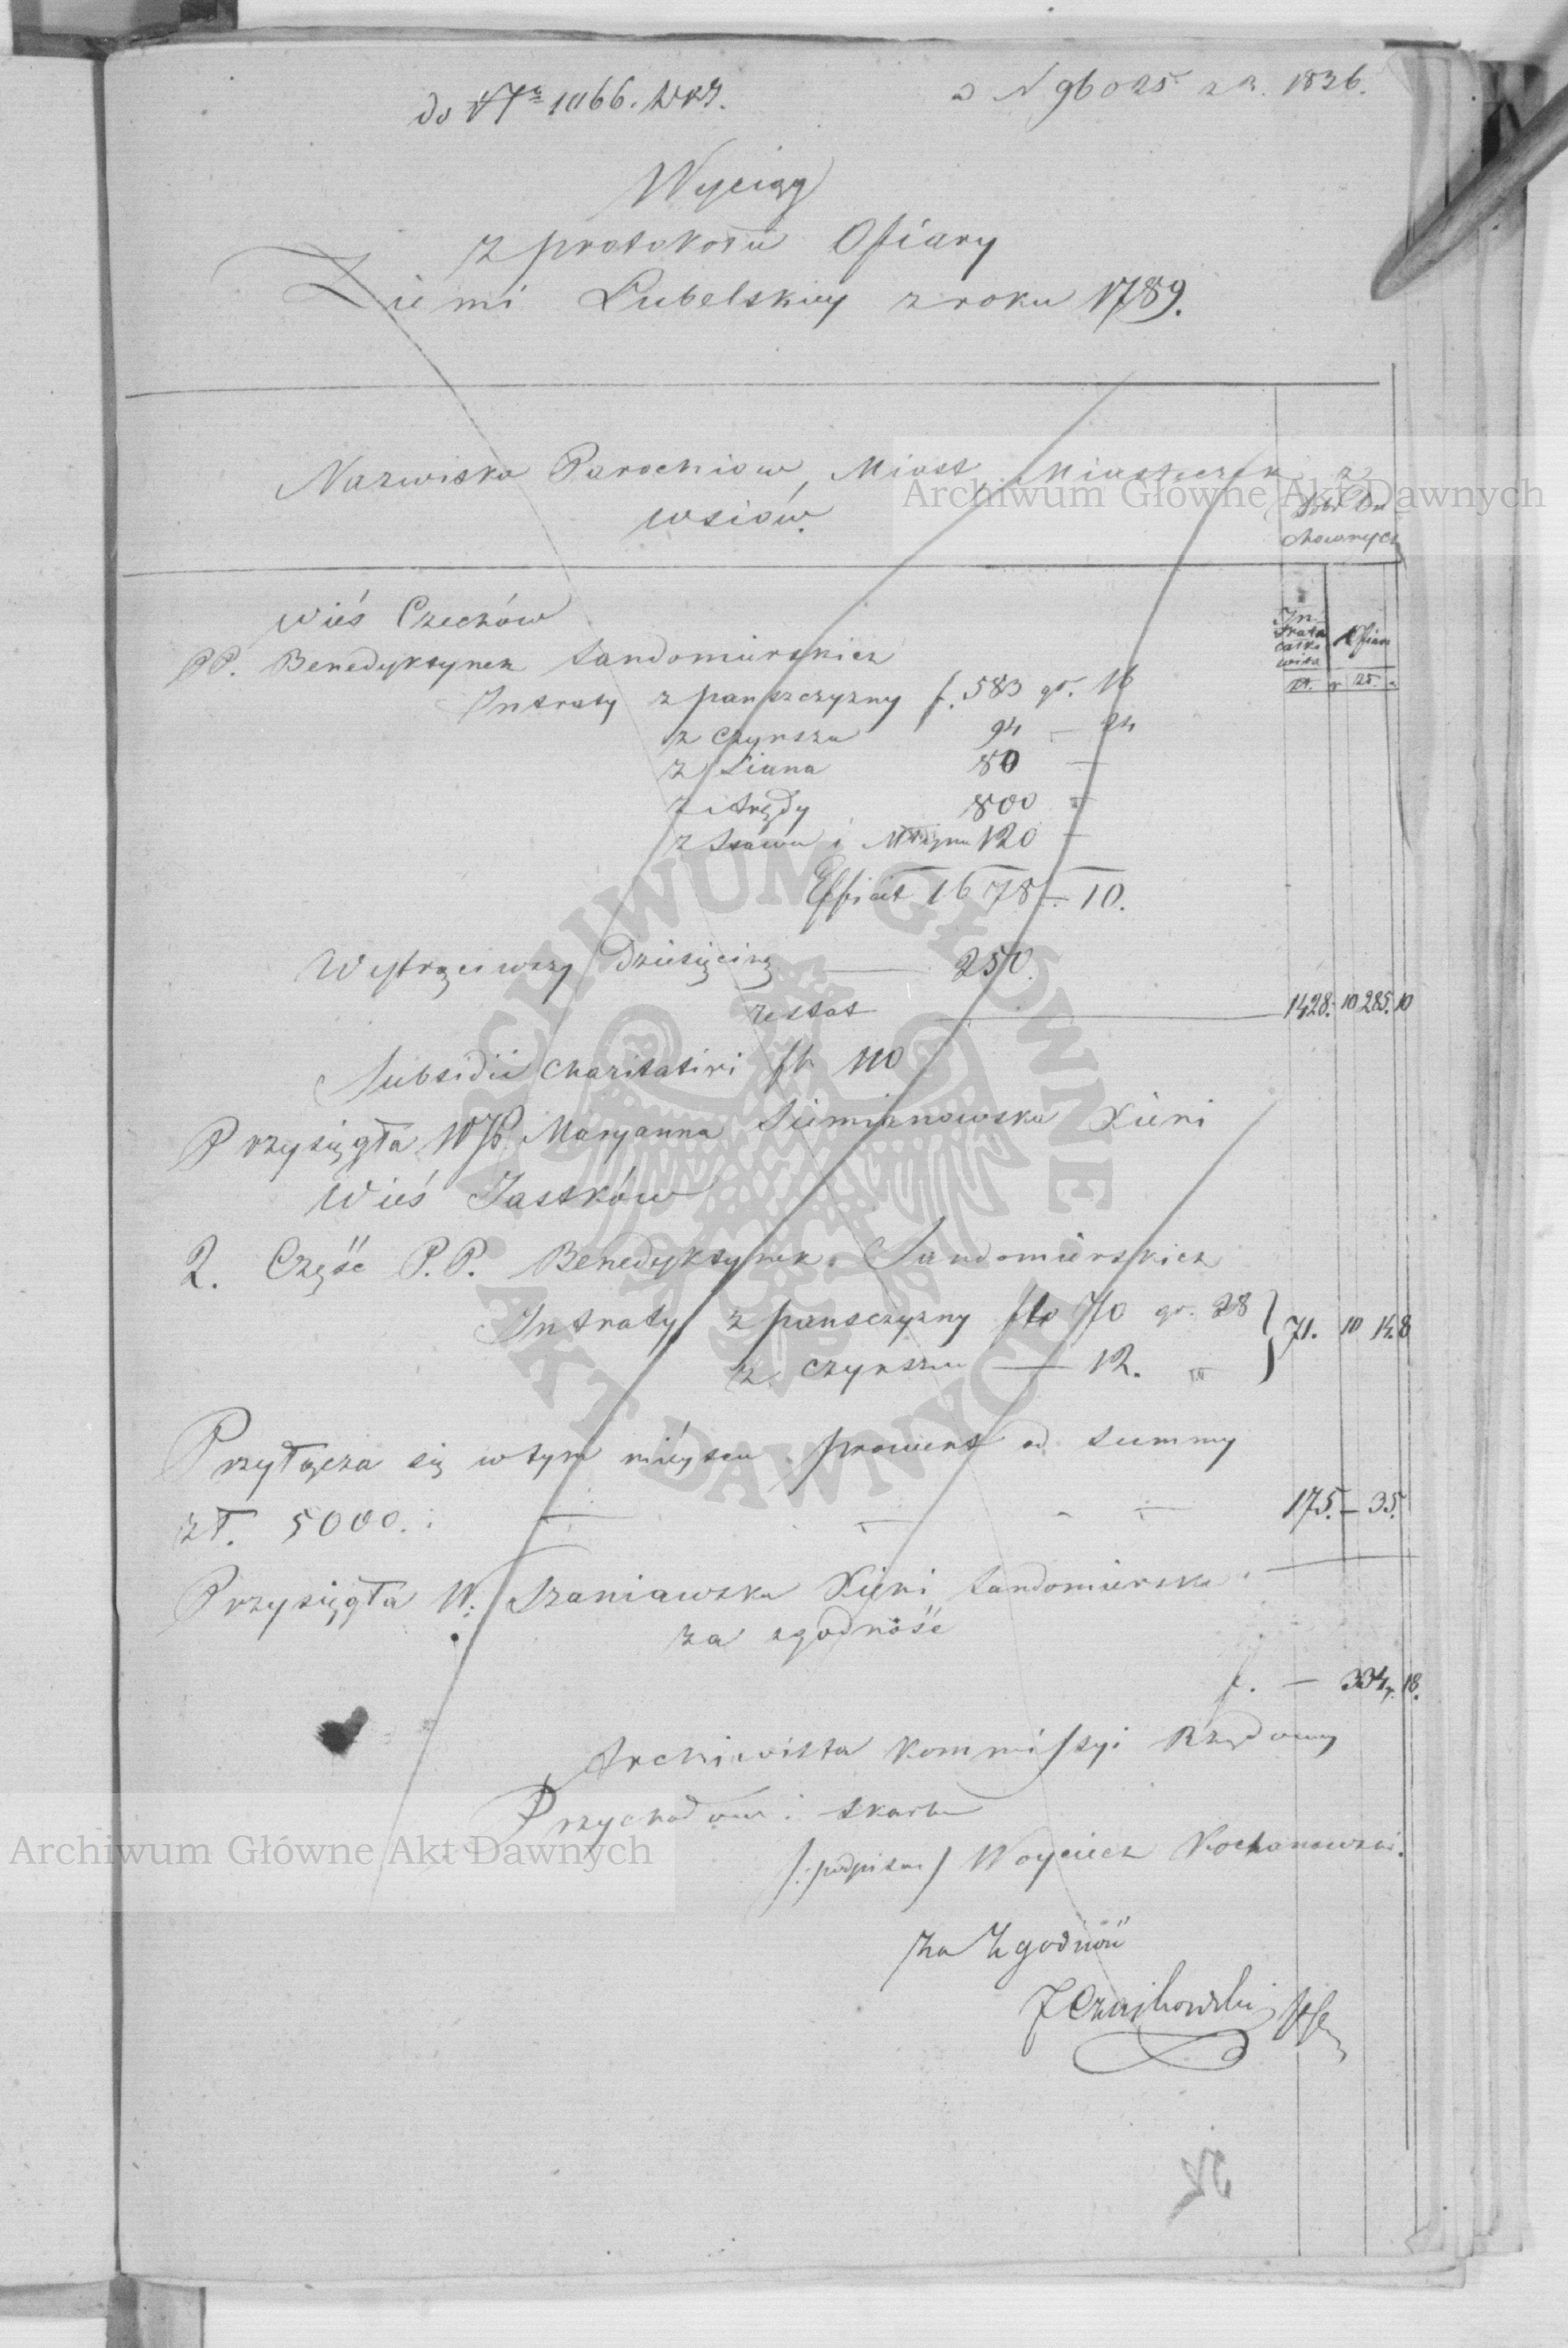 do Nr 1066.
N 96025 z r. 1836.
Wyciąg
z protokołu Ofiary
Ziemi Lubelskiey z roku 1789.
Nazwiska Parochiow, Miast, Miasteczek
wsiów.
z
Dobr Du
chownych
In
trata
całko
wita
Ofiara
zł. gr zł. gr
wieś Czechów
PP. Benedyktynek Sandomirskich
Intraty z panszczyzny f. 583 gr. 16
z Czynszu 94 — 24
z Siana 80 —
z Arędy 800 —
z Stawu i Młyna 120 —
Efficit 1678 — 10.
Wytrąciwszy Dziesięcinę — 250.
restat — 1428. 10 285. 10
Subsidii Charitativi fl. 110
Przysięgła WJP. Maryanna Siemianowska Xieni
Wieś Jastków
2. Część P.P. Benedyktynek Sandomierskich
Intraty z panszczyzny flo 70 gr. 28 } 71. 10 14 8
z czynszu — 12. "
Przyłącza się w tym mieyscu prowent od summy
zł. 5000. : — — - — 175. — 35.
Przysięgła W: Szaniawska Xieni Sandomierska
za zgodność
f. — 334. 18.
Archiwista Kommissyi Rządowey
Przychodow i Skarbu
/:podpisan/ Woyciech Kochanowski.
Za Zgodność
J Czaykowski
Archiwum Główne Akt Dawnych
Archiwum Główne Akt Dawnych
ARCHIWUM GŁÓWNE
AKT DAWNYCH